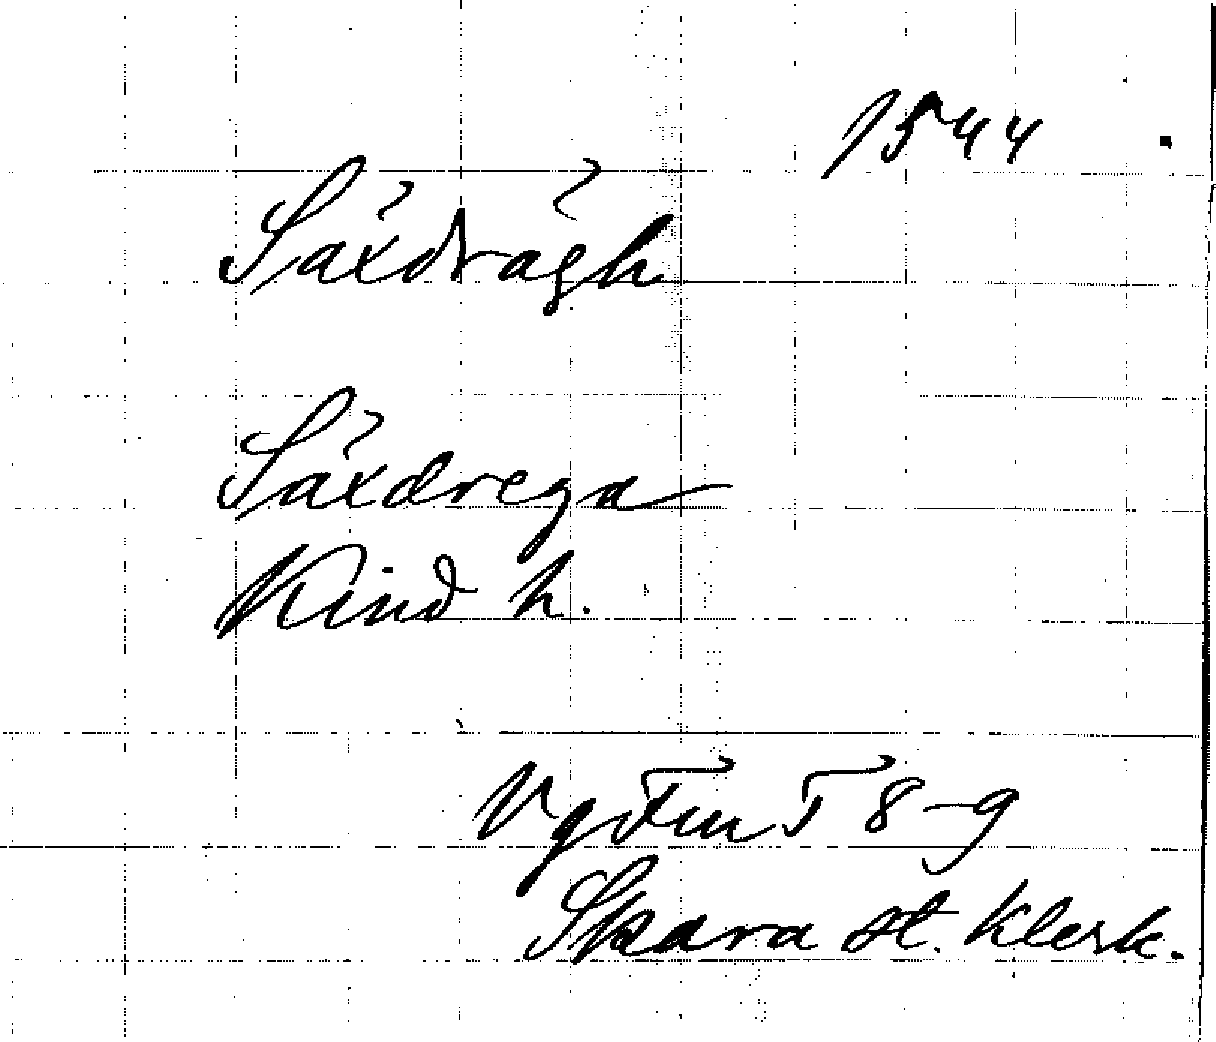 1544
Säxdrägh
Säxdrega
Kind h.
Vg Fru T 8-9
Skara st. Klerk.